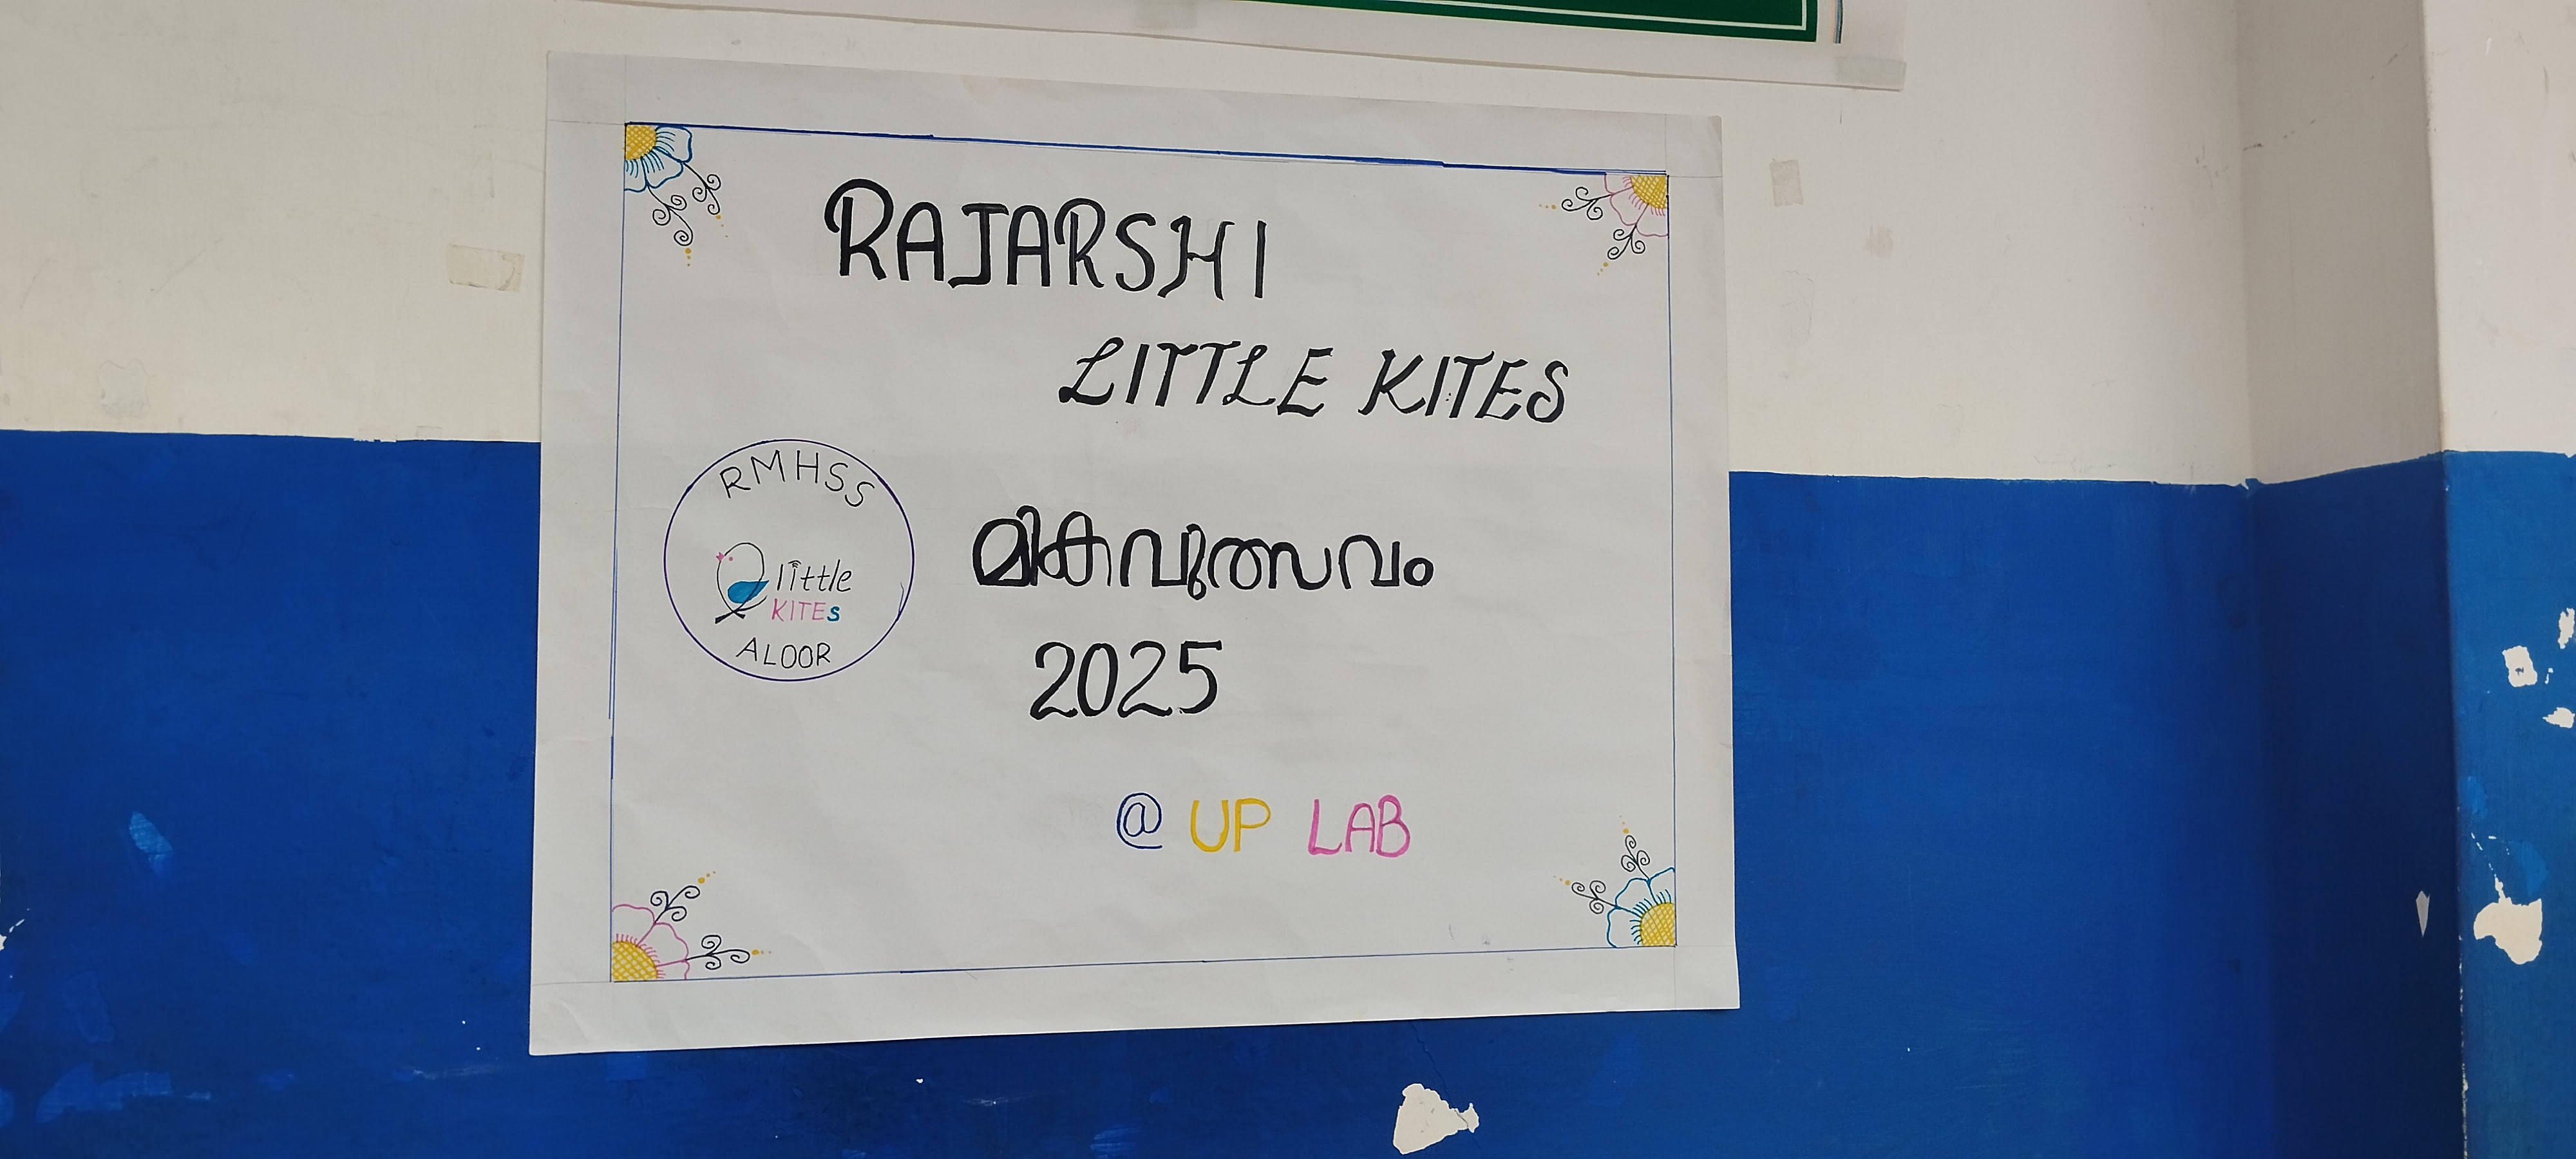 RAJARSHI
LITTLE KITES
RMHSS
little
KITEs
ALOOR
മികവുത്സവം
2025
@ UP LAB